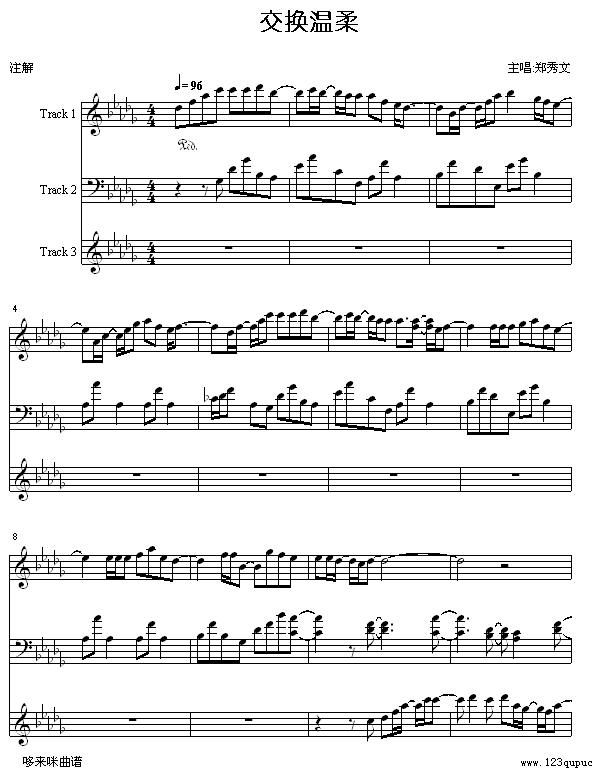 交换温柔
注解
主唱:郑秀文
♩= 96
Track 1
Ped.
Track 2
Track 3
4
8
哆来咪曲谱
www.123qupuc